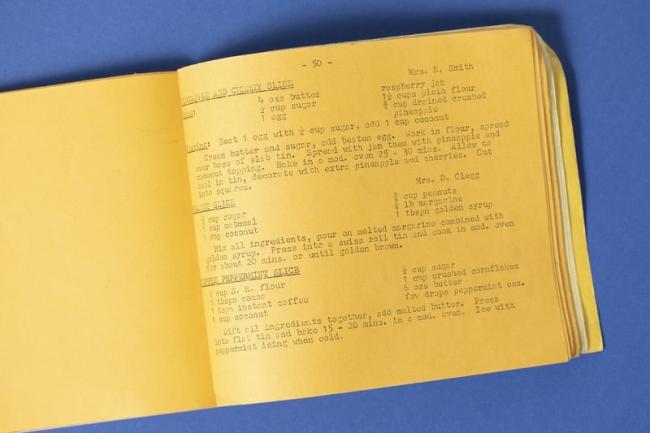 - 50 -
Mrs. N. Smith
AND CHERRY SLICE
4 ozs butter
raspberry jam
cup sugar
1½ cups plain flour
1 egg
cup drained crushed
pineapple
Beat 1 egg with ½ cup sugar, add 1 cup coconut
Cream butter and sugar, add beaten egg. Work in flour, spread
over base of slab tin. Spread with jam then with pineapple and
coconut topping. Bake in a mod. oven 25 - 30 mins. Allow to
cool in tin, decorate with extra pineapple and cherries. Cut
into squares.
Mrs. D. Clegg
SLICE
cup sugar
cup peanuts
cup oatmeal
lb margarine
cup coconut
1 tbspn golden syrup
Mix all ingredients, pour on melted margarine combined with
golden syrup. Press into a swiss roll tin and cook in mod. oven
for about 20 mins. or until golden brown.
PEPPERMINT SLICE
1 cup S. R. flour
cup sugar
1 tbspn cocoa
1 cup crushed cornflakes
1 tspn instant coffee
6 ozs butter
1 cup coconut
few drops peppermint ess.
Sift all ingredients together, add melted butter. Press
into flat tin and bake 15 - 20 mins. in a mod. oven. Ice with
peppermint icing when cold.